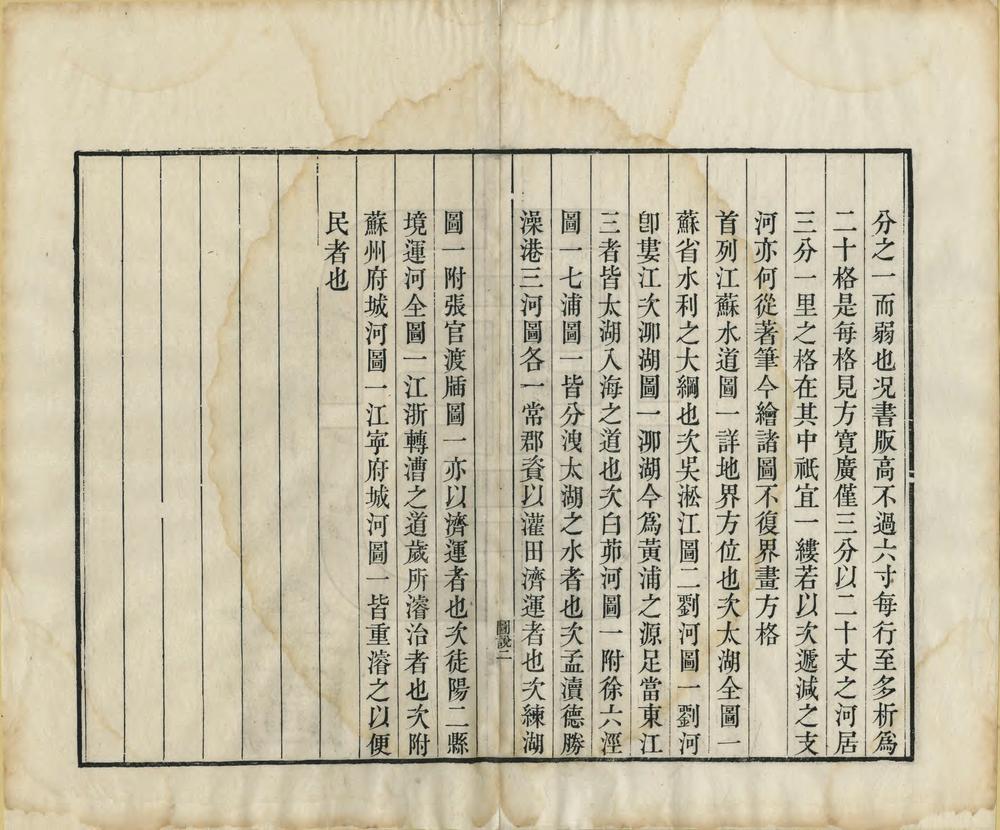 分之一而弱也况書版高不過六寸每行至多析爲
二十格是每格見方寬廣僅三分以二十丈之河居
三分一里之格在其中祇宜一縷若以次遞減之支
河亦何從著筆今繪諸圖不復界畫方格
首列江蘇水道圖一詳地界方位也次太湖全圖一
蘇省水利之大綱也次吳淞江圖二劉河圖一劉河
卽婁江次泖湖圖一泖湖今爲黃浦之源足當東江
三者皆太湖入海之道也次白茆河圖一附徐六涇
圖一七浦圖一皆分洩太湖之水者也次孟瀆德勝
澡港三河圖各一常郡資以灌田濟運者也次練湖
圖說二
圖一附張官渡牐圖一亦以濟運者也次徒陽二縣
境運河全圖一江浙轉漕之道歲所濬治者也次附
蘇州府城河圖一江寜府城河圖一皆重濬之以便
民者也